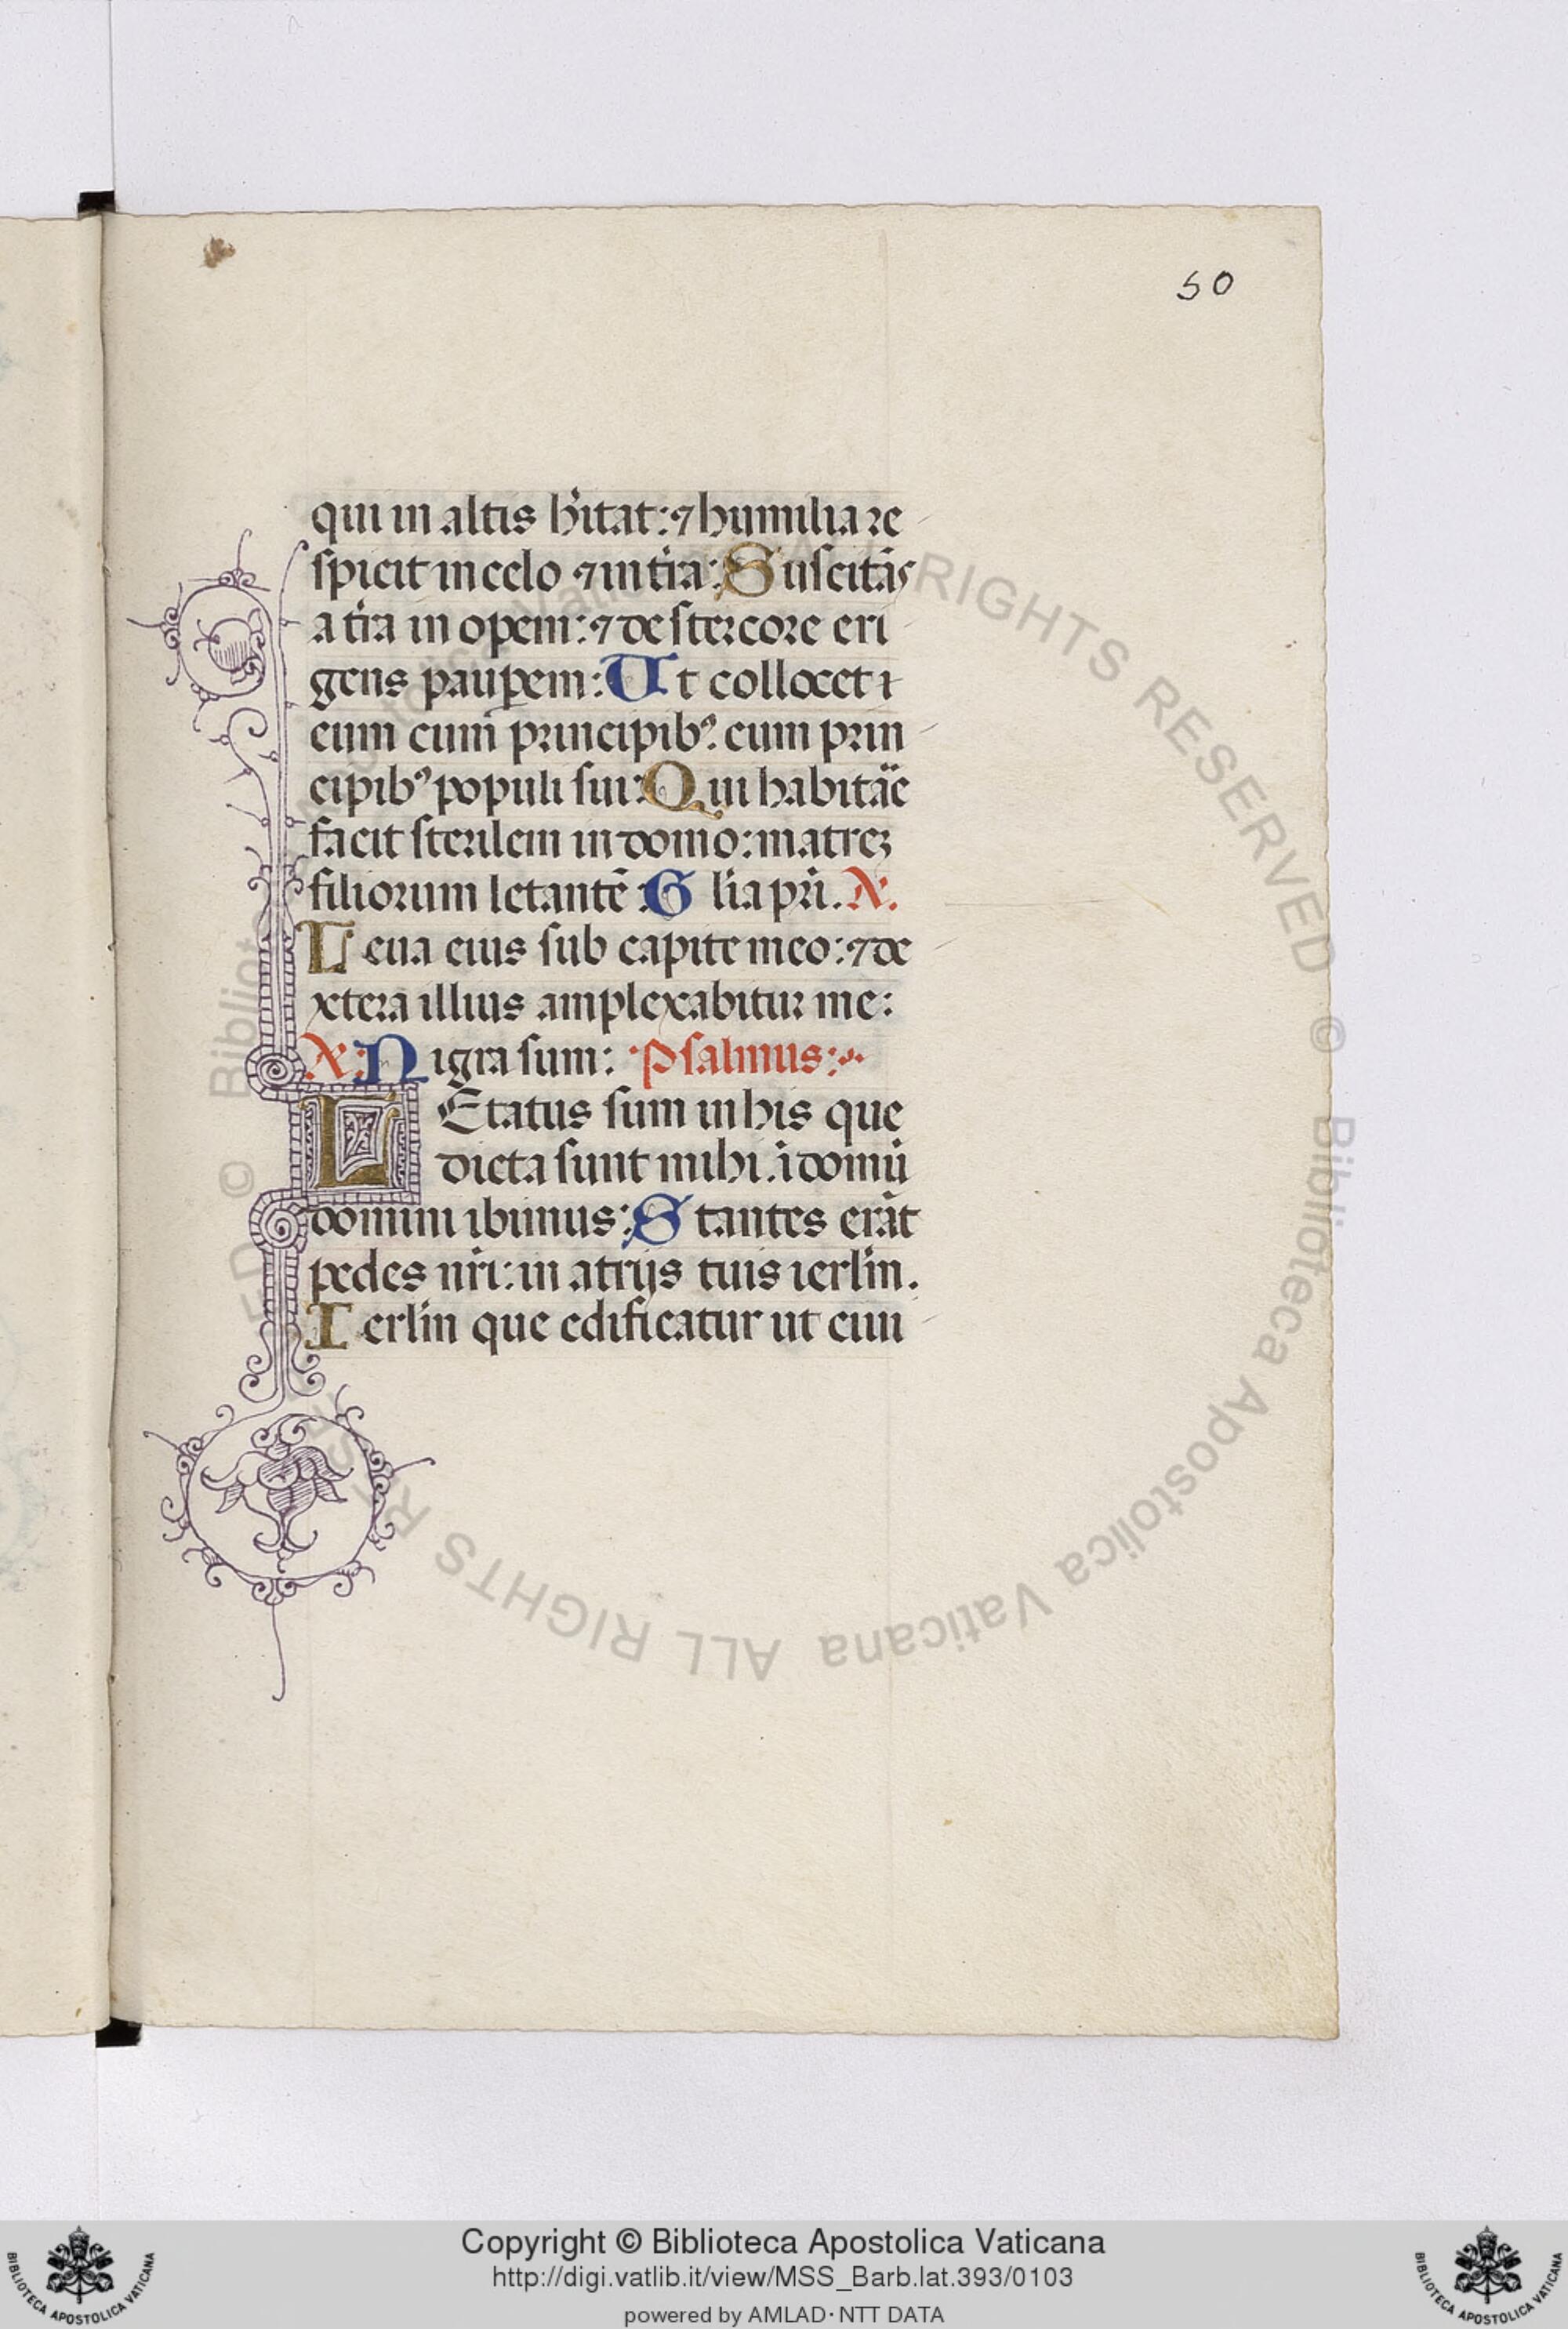 50
qui in altis h'itat: ⁊ humilia re
spicit in celo ⁊ in t'ra: Suscitās
a t'ra in opem: ⁊ de stercore eri
gens pauꝑem: Ut collocet ı
eum cum principibꝰ. cum prin
cipibꝰ populi sui: Qui habitāe
facit sterilem in domo: matreꝫ
filiorum letantē: Gl'ia pr̄i. A.
Leua eius sub capite meo: ⁊ de
xtera illius amplexabitur me:
A: Nigra sum: Psalmus:
LEtatus sum in his que
dicta sunt mihi. ī domū
domini ibimus: Stantes erāt
pedes nr̄i: in atrijs tuis ierl'm.
Ierl'm que edificatur ut ciui
Copyright © Biblioteca Apostolica Vaticana
http://digi.vatlib.it/view/MSS_Barb.lat.393/0103
powered by AMLAD·NTT DATA
BIBLIOTECA APOSTOLICA VATICANA
BIBLIOTECA APOSTOLICA VATICANA
© Biblioteca Apostolica Vaticana ALL RIGHTS RESERVED